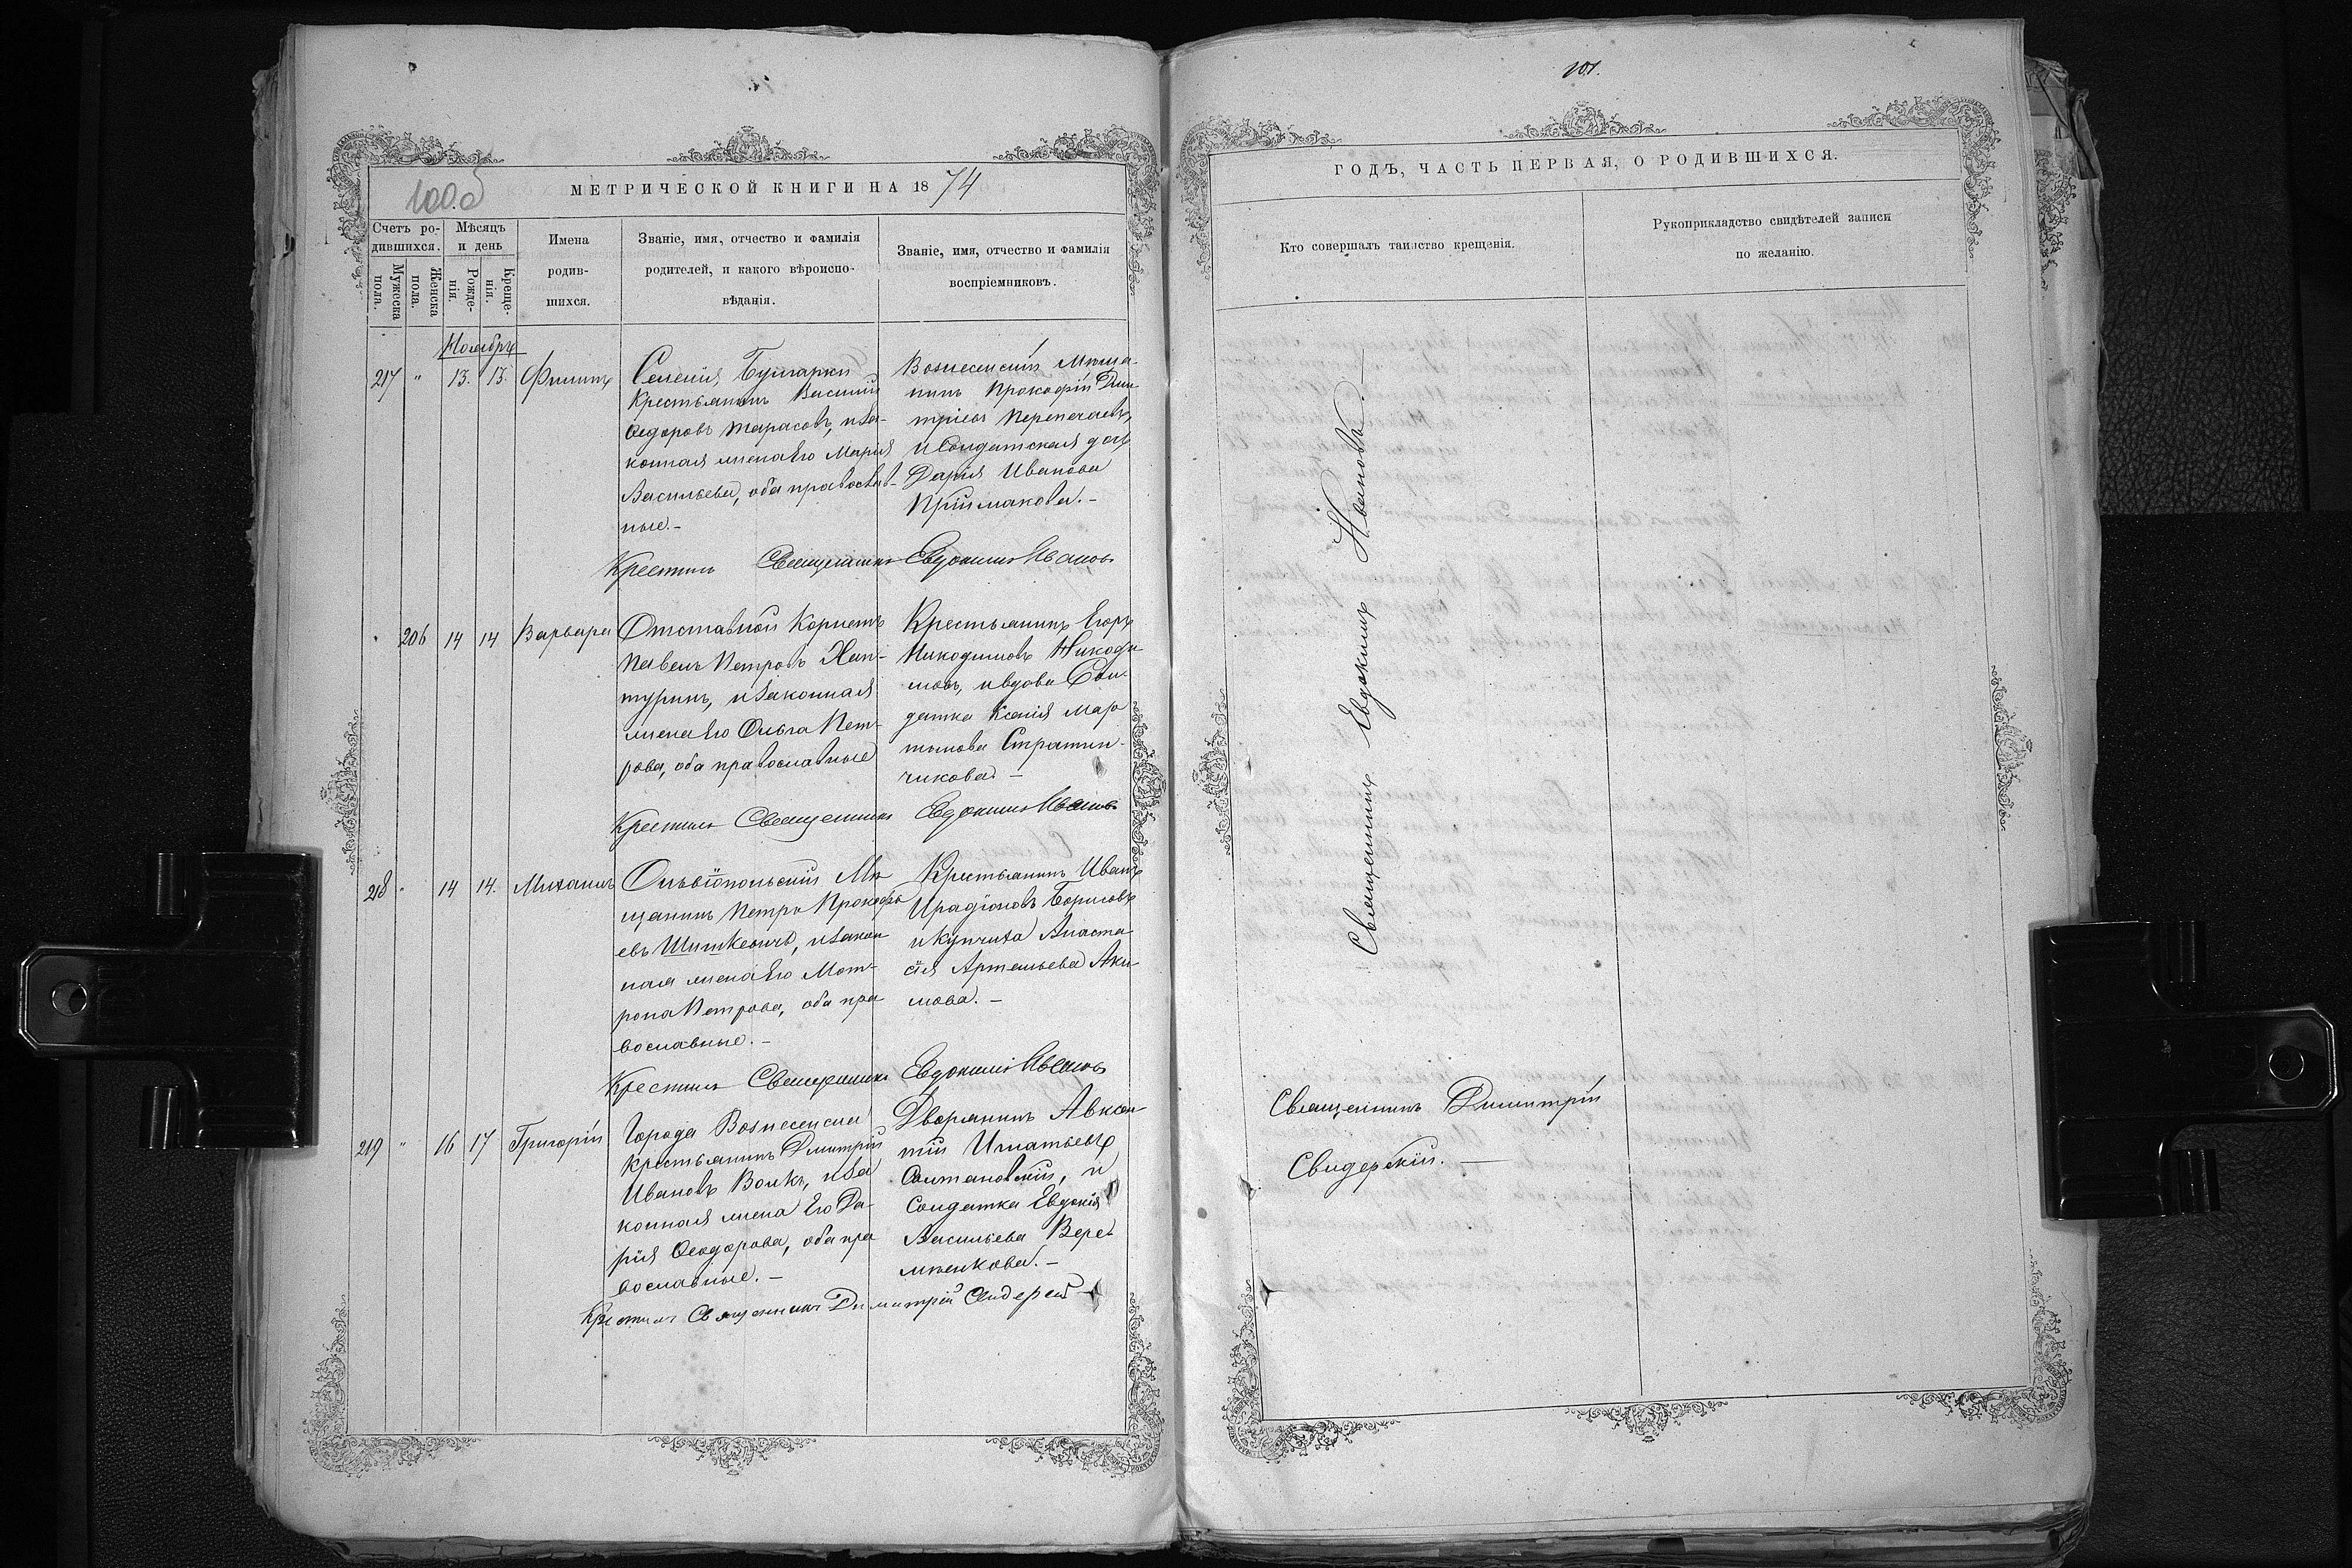 100.об
МЕТРИЧЕСКОЙ КНИГИ НА 1874
Счетъ ро-
дившихся.
Мужеска
пола.
Женска
пола.
Мѣсяцъ
и день
Рожде-
нія.
Креще-
нія.
Имена
родив-
шихся.
Званіе, имя, отчество и фамилія
родителей, и какого вѣроиспо-
вѣданія.
Званіе, имя, отчество и фамилія
воспріемниковъ.
Ноябрь
217 " 13. 13. Филиппъ
Селенія Бугарки
Крестьянинъ Василій
Ѳедоровъ Тарасовъ, и за-
конная жена Его Марія
Васильева, оба православ-
ные.-
Вознесенскій Мѣща-
нинъ Прокофій Дми-
тріевъ Перепечаевъ,
и Солдатская дочь
Дарія Иванова
Пріймакова.-
Крестилъ Священникъ Евдокимъ Ивановъ
" 206 14 14 Варвара
Отставной Корнетъ
Павелъ Петровъ Хап-
туринъ, и законная
жена Его Ольга Пет-
рова, оба православные
Крестьянинъ Егоръ
Никодимовъ Никоди-
мовъ, и вдова Сол-
датка Ксенія Мар
тынова
чикова. -
Крестилъ Священникъ Евдокимъ Ивановъ
218 " 14 14. Михаилъ
Ольвіопольскій Мѣ
щанинъ Петръ Прокофь
евъ Шишкевичъ, и закон
ная жена Его Мат-
рона Петрова, оба пра
вославные.-
Крестьянинъ Иванъ
Ирадіоновъ Борисовъ
и Купчиха Анаста
сія Артемьева Аки
мова. -
Крестилъ Священникъ Евдокимъ Ивановъ
219 " 16 17 Григорій
Города Вознесенска
крестьянинъ Дмитрій
Ивановъ Волкъ, и за
конная жена Его Да-
рія Ѳеодорова, оба пра
вославные. -
Дворянинъ Авксен
тій Игнатьевъ
Солтановскій, и
Солдатка Евдокія
Васильева Вере
мѣенкова. -
Крестилъ Священникъ Димитрій Свидерскій
101.
ГОДЪ, ЧАСТЬ ПЕРВАЯ, О РОДИВШИХСЯ.
Кто совершалъ таинство крещенія.
Рукоприкладство свидѣтелей записи
по желанію.
Священникъ Евдокимъ Ивановъ. -
Священникъ Димитрій
Свидерскій. -